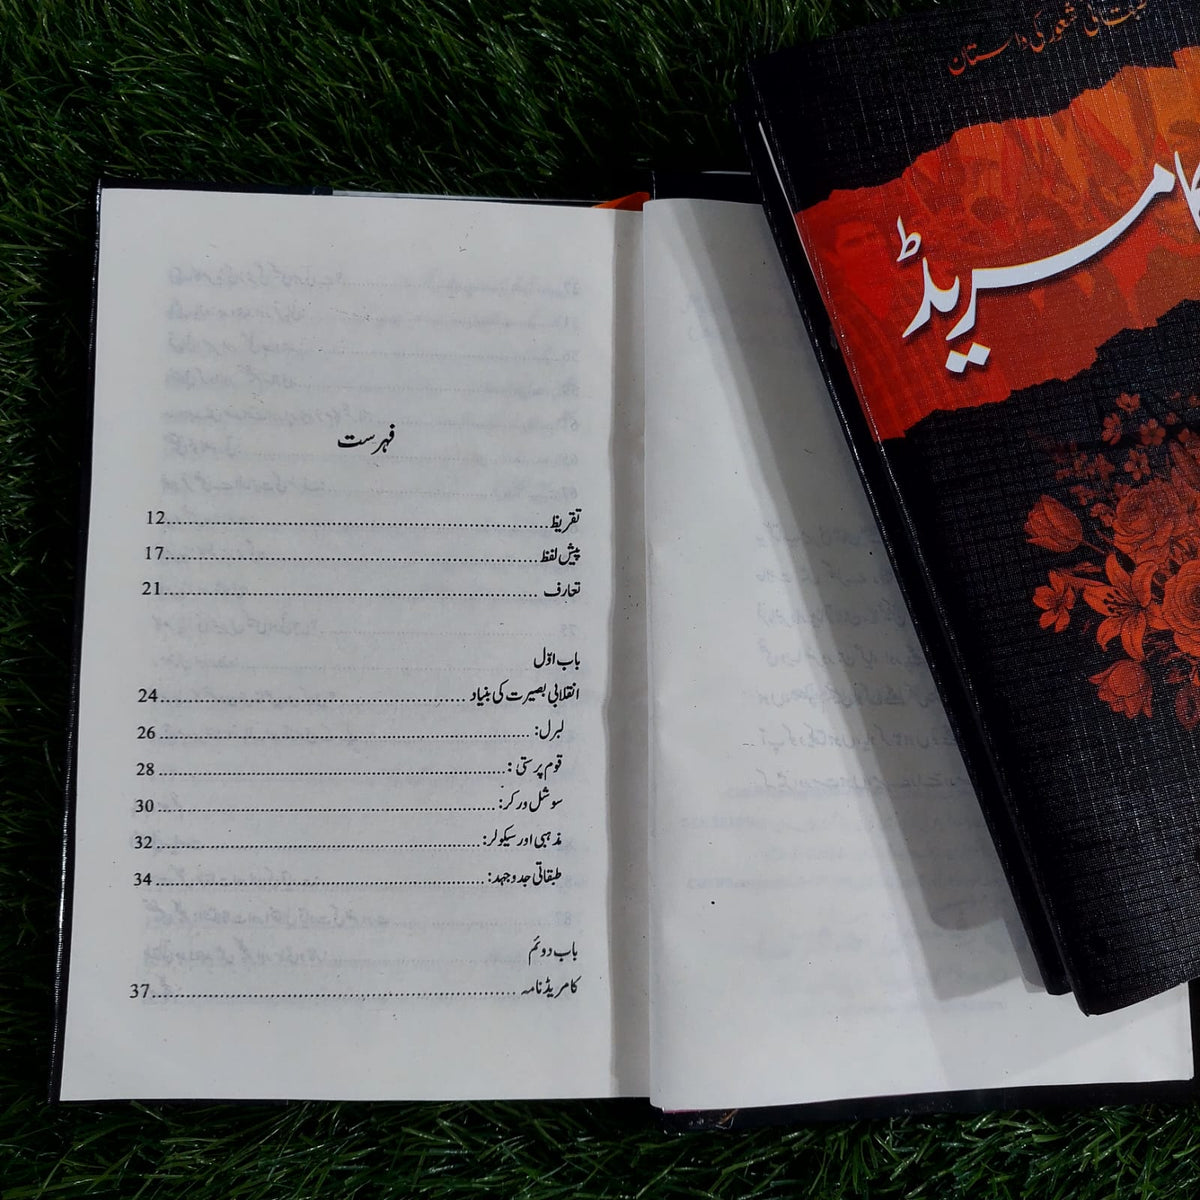 شعور کی داستان
کامریڈ
فہرست
تقریظ......12
پیش لفظ......17
تعارف......21
باب اوّل
انقلابی بصیرت کی بنیاد......24
لبرل:......26
قوم پرستی:......28
سوشل ورکر:......30
مذہبی اور سیکولر:......32
طبقاتی جدوجہد:......34
باب دوئم
کامریڈ نامہ......37